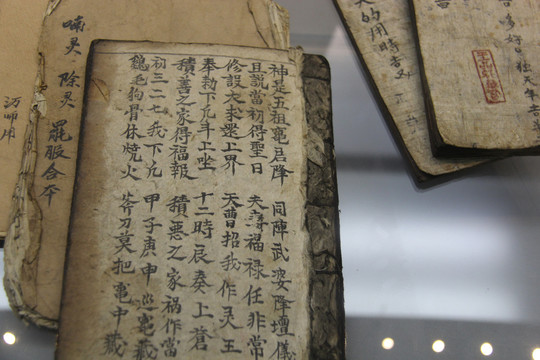 神是五祖竃君降 同陣武婆降壇儀
且説當初得聖日 夫福禄任非常
修設大求還上界 天曹招我作灵王
奉勅下凢年上坐 十二時辰奏上蒼
積善之家得福報 積惡之家禍作當
初三二七我下凢 甲子庚申巡竃蔵
鷄毛狗骨休燒火 斧刀莫把竃中蔵
喃灵 除灵 罷服合本
師用
大的用時吉又